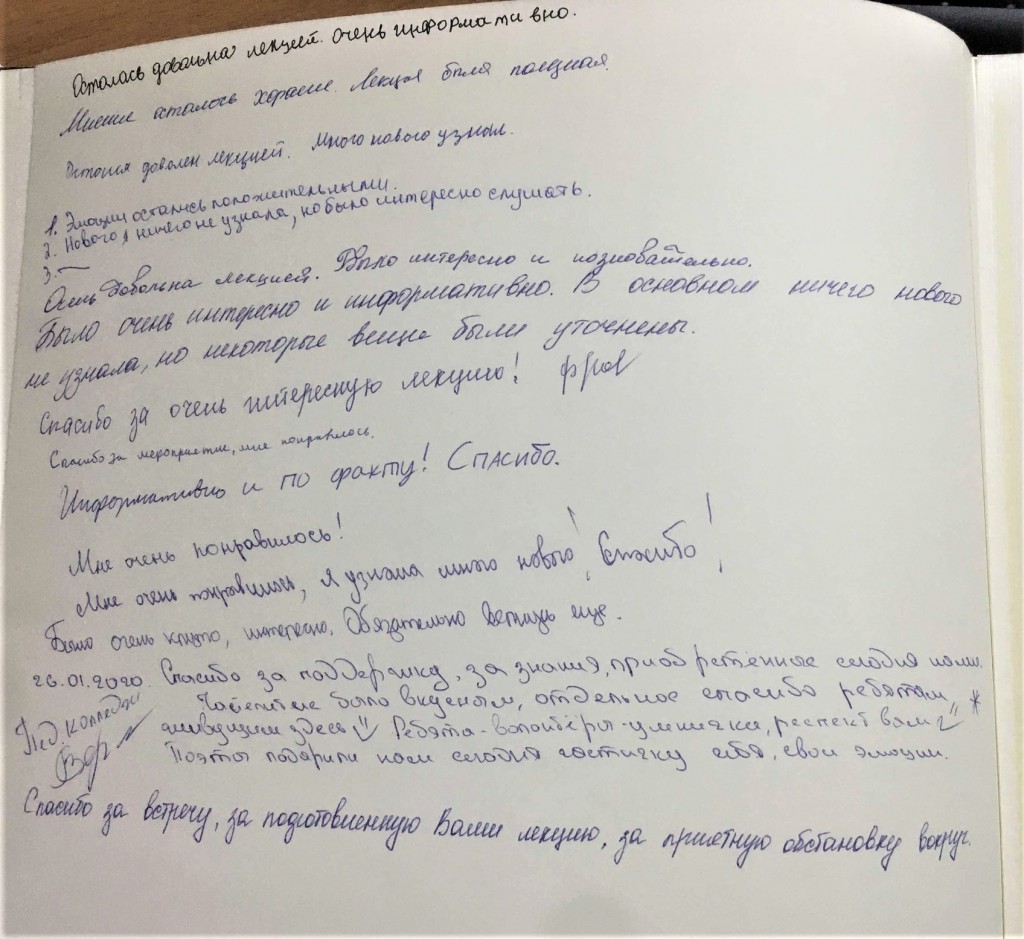 Осталась довольна лекцией. Очень информативно.
Мнение осталось хорошее. Лекция была полезная.
Остался доволен лекцией. Много нового узнал.
1. Эмоции остались положительными.
2. Нового я ничего не узнала, но было интересно слушать.
3. —
Очень довольна лекцией. Было интересно и познавательно.
Было очень интересно и информативно. В основном ничего нового
не узнала, но некоторые вещи были уточнены.
Спасибо за очень интересную лекцию!
Спасибо за мероприятие, мне понравилось.
Информативно и по факту! Спасибо.
Мне очень понравилось!
Мне очень понравилось, я узнала много нового! Спасибо!
Было очень круто, интересно. Обязательно вернусь ещё.
26.01.2020. Спасибо за поддержку, за знания, приобретённые сегодня нами.
Чаепитие было отдельное спасибо ребятам,
живущим здесь Ребята-волонтёры-умнички, респект вам
Пед. колледж
Поэты подарили нам сегодня частичку себя, свои эмоции.
Спасибо за встречу, за подготовленную Вами лекцию, за приятную обстановку вокруг.